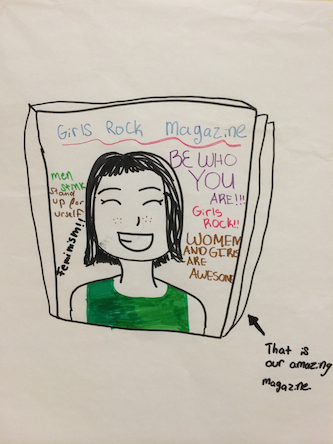 Girls Rock Magazine
BE WHO
YOU
ARE!!!
Girls
Rock!!
WOMEN
AND GIRLS
ARE
AWESOME
men
stink
Stand
up for
urself
feminism!!
That is
our amazing
magazine.